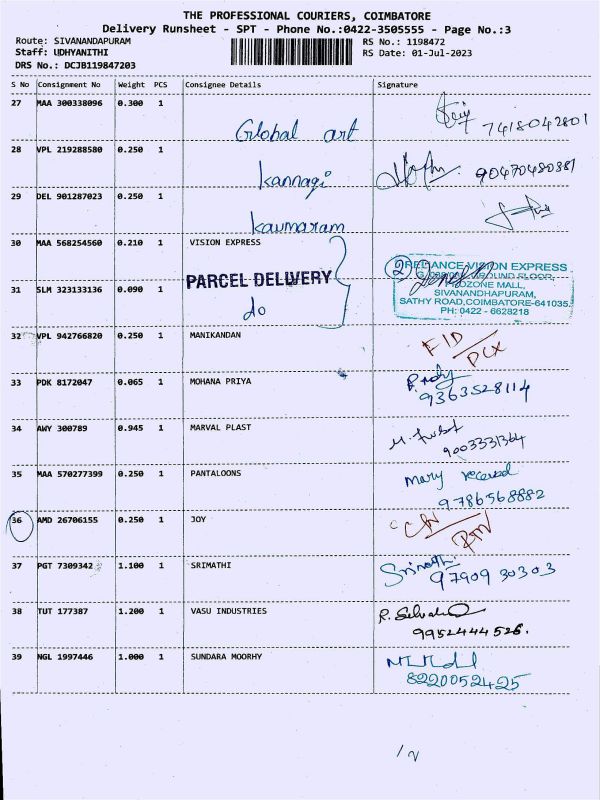 THE PROFESSIONAL COURIERS, COIMBATORE
Delivery Runsheet - SPT - Phone No.:0422-3505555 - Page No.:3
Route: SIVANANDAPURAM RS No.: 1198472
Staff: UDHYANITHI RS Date: 01-Jul-2023
DRS No.: DCJB119847203
S No Consignment No Weight PCS Consignee Details Signature
27 MAA 300338096 0.300 1 Global art 7418042801
28 VPL 219288580 0.250 1 kannagi 90470480381
29 DEL 901287023 0.250 1 kaumaram
30 MAA 568254560 0.210 1 VISION EXPRESS
31 SLM 323133136 0.090 1 PARCEL DELIVERY
do
2 RELIANCE VISION EXPRESS
GROUND FLOOR,
PROZONE MALL,
SIVANANDHAPURAM,
SATHY ROAD,COIMBATORE-641035.
PH: 0422 - 6628218
32 VPL 942766820 0.250 1 MANIKANDAN
33 PDK 8172047 0.065 1 MOHANA PRIYA 9363528114
34 AWY 300789 0.945 1 MARVAL PLAST 9003331364
35 MAA 570277399 0.250 1 PANTALOONS mary received
9786568882
36 AMD 26706155 0.250 1 JOY
37 PGT 7309342 1.100 1 SRIMATHI Srimathi
97909 30303
38 TUT 177387 1.200 1 VASU INDUSTRIES
9952444526.
39 NGL 1997446 1.000 1 SUNDARA MOORHY
8220052425